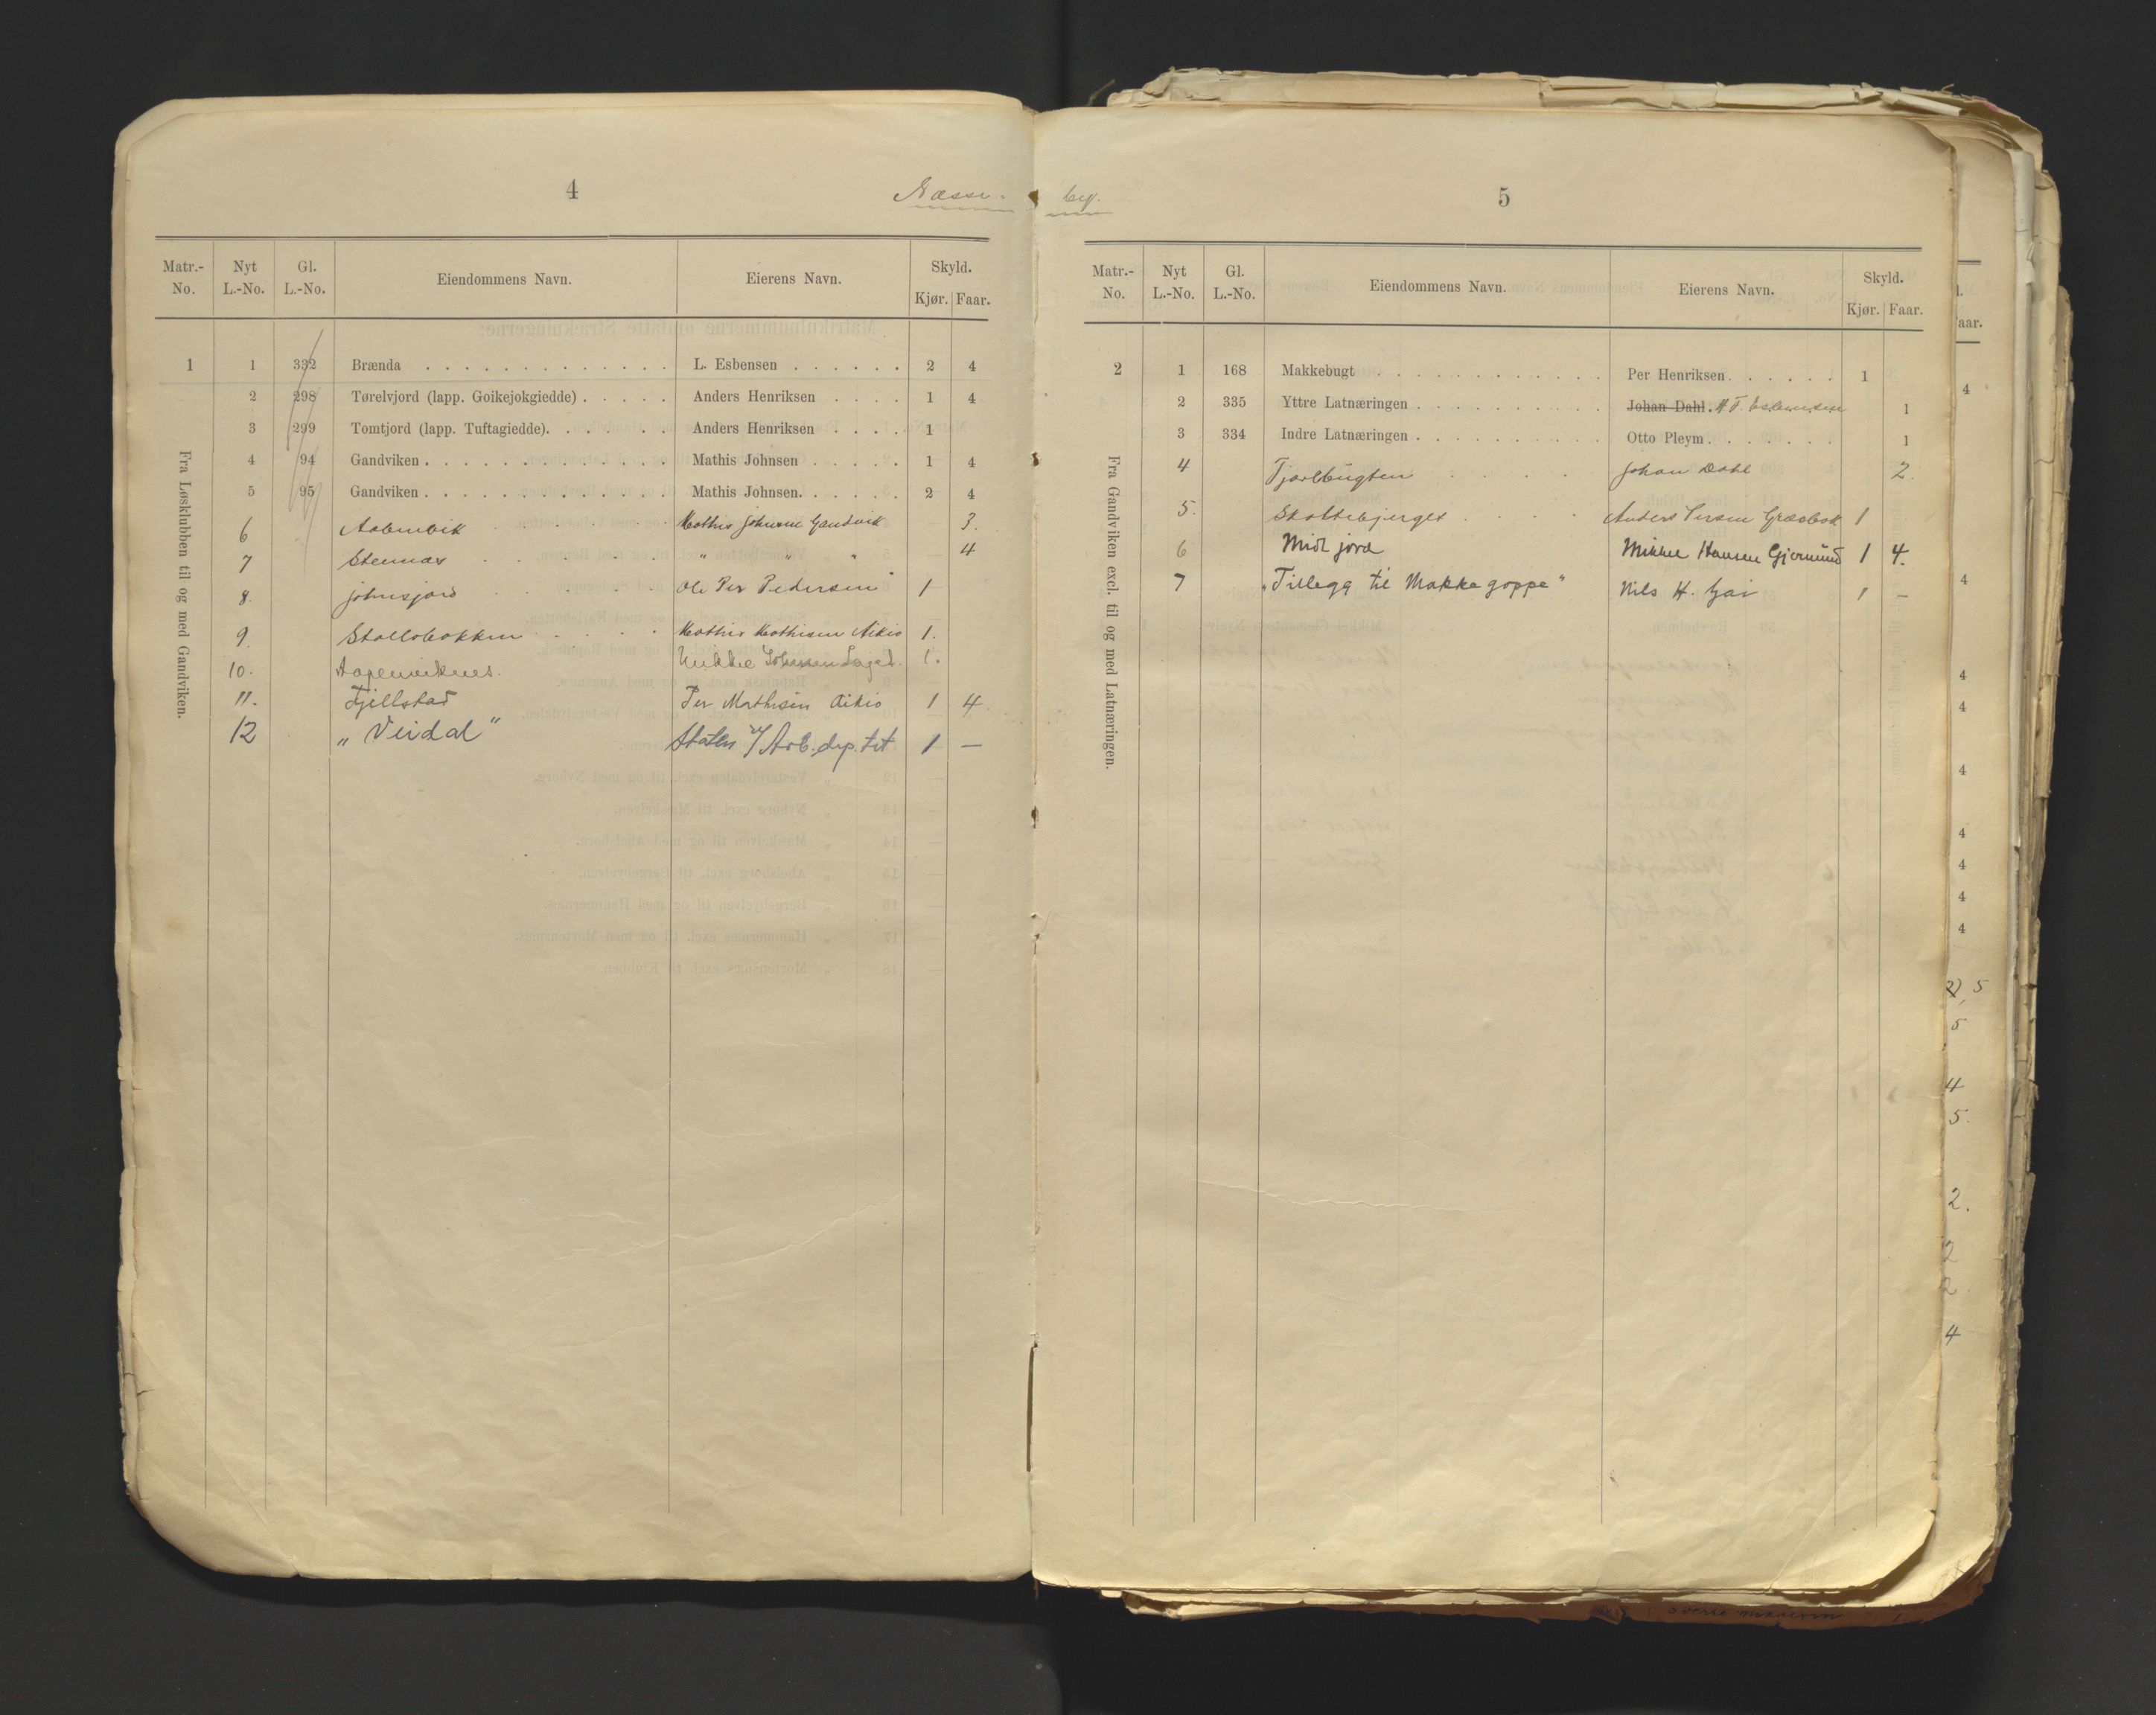 4
Næsse-
Matr.-No. Nyt L.-No. Gl. L.-No. Eiendommens Navn. Eierens Navn. Skyld. Kjør. Faar.
Fra Løsklubben til og med Gandviken.
1 1 332 Brænda L. Esbensen 2 4
2 298 Tørelvjord (lapp. Goikejokgiedde) Anders Henriksen 1 4
3 299 Tomtjord (lapp. Tuftagiedde). Anders Henriksen 1
4 94 Gandviken Mathis Johnsen 1 4
5 95 Gandviken Mathis Johnsen. 2 4
6 Aabenvik Mathis Johnsen Gandvik 3.
7 Stennæs " " " 4
8. Johnsjord Ole Per Pedersen 1
9. Stallobakken Mathis Mathisen Aikio 1.
10. Aapenviknes. Mikkel 1.
11. Fjellstad Per Mathisen Aikio 1 4.
12 „Veidal" Staten v/ Arb.dep.tet 1 —
by.
5
Matr.-No. Nyt L.-No. Gl. L.-No. Eiendommens Navn. Eierens Navn. Skyld. Kjør. Faar.
Fra Gandviken excl. til og med Latnæringen.
2 1 168 Makkebugt Per Henriksen 1
2 335 Yttre Latnæringen Johan Dahl. 1
3 334 Indre Latnæringen Otto Pleym 1
4 Johan Dahl 2.
5. Skoltebjerget Anders Persen 1
6 Midtjord Mikkel Hansen Gjermund 1 4.
7 „Tillegg til Makkegoppe" Nils H. 1 —